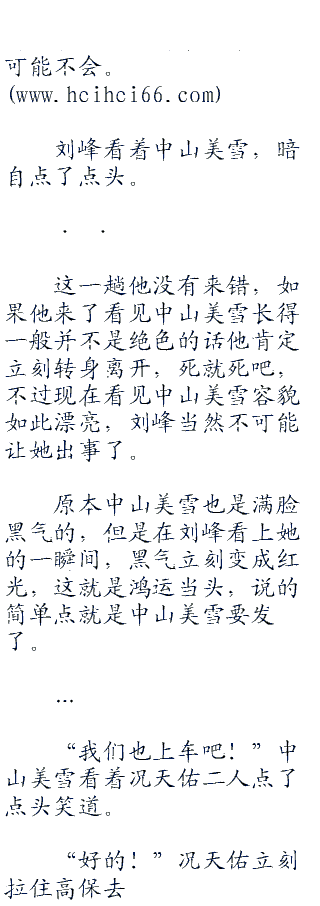 可能不会。
(www.hcihci66.com)
刘峰看着中山美雪，暗
自点了点头。
. .
这一趟他没有来错，如
果他来了看见中山美雪长得
一般并不是绝色的话他肯定
立刻转身离开，死就死吧，
不过现在看见中山美雪容貌
如此漂亮，刘峰当然不可能
让她出事了。
原本中山美雪也是满脸
黑气的，但是在刘峰看上她
的一瞬间，黑气立刻变成红
光，这就是鸿运当头，说的
简单点就是中山美雪要发
了。
...
“我们也上车吧！”中
山美雪看着况天佑二人点了
点头笑道。
“好的！”况天佑立刻
拉住高保去